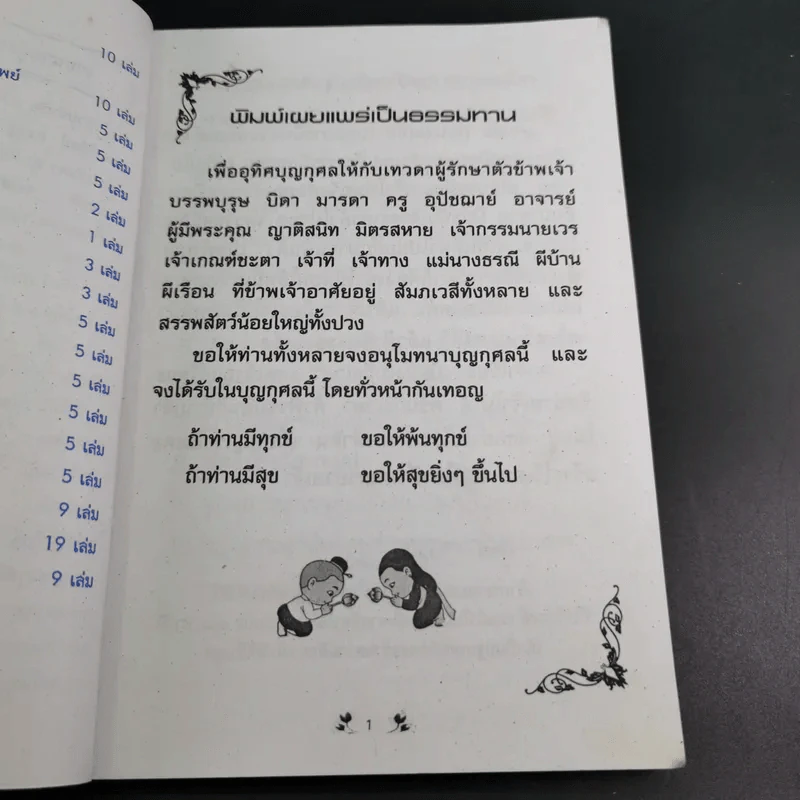 10 เล่ม
พย์
10 เล่ม
5 เล่ม
5 เล่ม
5 เล่ม
2 เล่ม
1 เล่ม
3 เล่ม
3 เล่ม
5 เล่ม
5 เล่ม
5 เล่ม
5 เล่ม
5 เล่ม
5 เล่ม
9 เล่ม
19 เล่ม
9 เล่ม
พิมพ์เผยแพร่เป็นธรรมทาน
เพื่ออุทิศบุญกุศลให้กับเทวดาผู้รักษาตัวข้าพเจ้า
บรรพบุรุษ บิดา มารดา ครู อุปัชฌาย์ อาจารย์
ผู้มีพระคุณ ญาติสนิท มิตรสหาย เจ้ากรรมนายเวร
เจ้าเกณฑ์ชะตา เจ้าที่ เจ้าทาง แม่นางธรณี ผีบ้าน
ผีเรือน ที่ข้าพเจ้าอาศัยอยู่ สัมภเวสีทั้งหลาย และ
สรรพสัตว์น้อยใหญ่ทั้งปวง
ขอให้ท่านทั้งหลายจงอนุโมทนาบุญกุศลนี้ และ
จงได้รับในบุญกุศลนี้ โดยทั่วหน้ากันเทอญ
ถ้าท่านมีทุกข์ ขอให้พ้นทุกข์
ถ้าท่านมีสุข ขอให้สุขยิ่งๆ ขึ้นไป
1